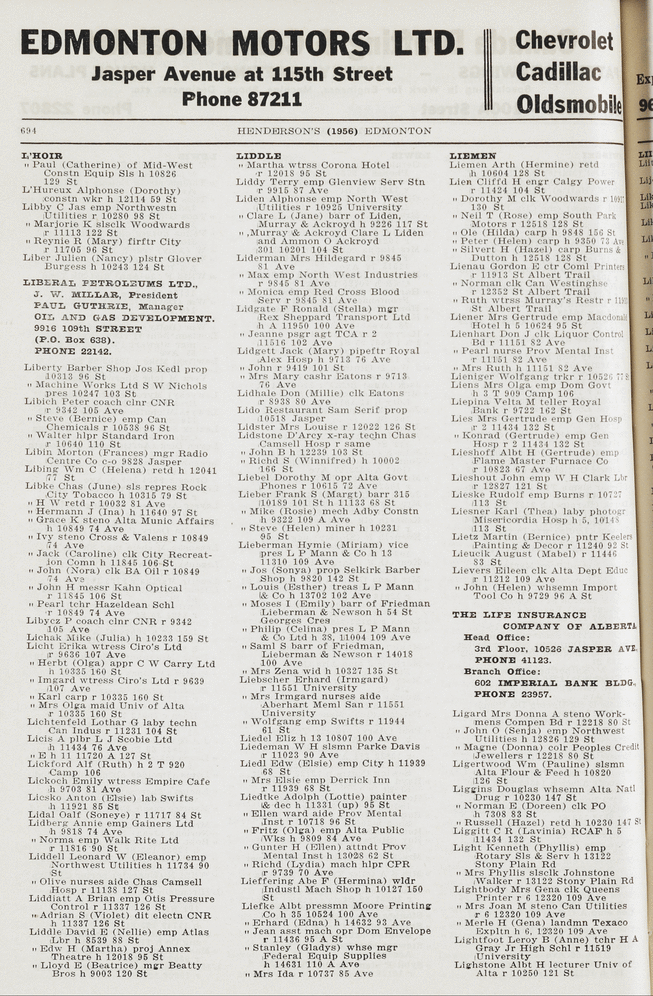 EDMONTON MOTORS LTD.
Jasper Avenue at 115th Street
Phone 87211
Chevrolet
Cadillac
Oldsmobile
694
HENDERSON'S (1956) EDMONTON
L'HOIR
" Paul (Catherine) of Mid-West
Constn Equip Sls h 10826
129 St
L'Hureux Alphonse (Dorothy)
constn wkr h 12114 59 St
Libby C Jas emp Northwestn
Utilities r 10280 98 St
" Marjorie K slsclk Woodwards
r 11113 122 St
" Reynie R (Mary) firftr City
r 11705 96 St
Liber Julien (Nancy) plstr Glover
Burgess h 10243 124 St
LIBERAL PETROLEUMS LTD.,
J. W. MILLAR, President
PAUL GUTHRIE, Manager
OIL AND GAS DEVELOPMENT.
9916 109th STREET
(P.O. Box 638).
PHONE 22142.
Liberty Barber Shop Jos Kedl prop
10313 96 St
" Machine Works Ltd S W Nichols
pres 10247 103 St
Libich Peter coach clnr CNR
r 9342 105 Ave
" Steve (Bernice) emp Can
Chemicals r 10538 96 St
" Walter hlpr Standard Iron
r 10640 110 St
Libin Morton (Frances) mgr Radio
Centre Co c-o 9828 Jasper
Libing Wm C (Helena) retd h 12041
77 St
Libke Chas (June) sls repres Rock
City Tobacco h 10315 79 St
" H W retd r 10032 81 Ave
" Hermann J (Ina) h 11640 97 St
" Grace K steno Alta Munic Affairs
h 10849 74 Ave
" Ivy steno Cross & Valens r 10849
74 Ave
" Jack (Caroline) clk City Recreat-
ion Comn h 11845 106 St
" John (Nora) clk BA Oil r 10849
74 Ave
" John H messr Kahn Optical
r 11845 106 St
" Pearl tchr Hazeldean Schl
r 10849 74 Ave
Libycz P coach clnr CNR r 9342
105 Ave
Lichak Mike (Julia) h 10233 159 St
Licht Erika wtress Ciro's Ltd
r 9636 107 Ave
" Herbt (Olga) appr C W Carry Ltd
h 10335 160 St
" Imgard wtress Ciro's Ltd r 9639
107 Ave
" Karl carp r 10335 160 St
" Mrs Olga maid Univ of Alta
r 10335 160 St
Lichtenfeld Lothar G laby techn
Can Indus r 11231 104 St
Licis A plbr L J Scobie Ltd
h 11434 76 Ave
" E h 11 11720 A 127 St
Lickford Alf (Ruth) h 2 T 920
Camp 106
Lickoch Emily wtress Empire Cafe
h 9703 81 Ave
Licsko Anton (Elsie) lab Swifts
h 11921 85 St
Lidal Oalf (Soneye) r 11717 84 St
Lidberg Annie emp Gainers Ltd
h 9818 74 Ave
" Norma emp Walk Rite Ltd
r 11816 90 St
Liddell Leonard W (Eleanor) emp
Northwest Utilities h 11734 90
St
" Olive nurses aide Chas Camsell
Hosp r 11138 127 St
Liddiatt A Brian emp Otis Pressure
Control r 11337 126 St
" Adrian S (Violet) dit electn CNR
h 11337 126 St
Liddle David E (Nellie) emp Atlas
Lbr h 8539 88 St
" Edw H (Martha) proj Annex
Theatre h 12018 95 St
" Lloyd E (Beatrice) mgr Beatty
Bros h 9003 120 St
LIDDLE
" Martha wtrss Corona Hotel
r 12018 95 St
Liddy Terry emp Glenview Serv Stn
r 9915 87 Ave
Liden Alphonse emp North West
Utilities r 10925 University
" Clare L (Jane) barr of Liden,
Murray & Ackroyd h 9226 117 St
" Murray & Ackroyd Clare L Liden
and Ammon O Ackroyd
301 10201 104 St
Liderman Mrs Hildegard r 9845
81 Ave
" Max emp North West Industries
r 9845 81 Ave
" Monica emp Red Cross Blood
Serv r 9845 81 Ave
Lidgate F Ronald (Stella) mgr
Rex Sheppard Transport Ltd
h A 11950 100 Ave
" Jeanne psgr agt TCA r 2
11516 102 Ave
Lidgett Jack (Mary) pipeftr Royal
Alex Hosp h 9713 76 Ave
" John r 9419 101 St
" Mrs Mary cashr Eatons r 9713
76 Ave
Lidhale Don (Millie) clk Eatons
r 8938 80 Ave
Lido Restaurant Sam Serif prop
10518 Jasper
Lidster Mrs Louise r 12022 126 St
Lidstone D'Arcy x-ray techn Chas
Camsell Hosp r same
" John B h 12239 103 St
" Richd S (Winnifred) h 10002
166 St
Liebel Dorothy M opr Alta Govt
Phones r 10615 72 Ave
Lieber Frank S (Margt) barr 315
10189 101 St h 11133 68 St
" Mike (Rosie) mech Adby Constn
h 9322 109 A Ave
" Steve (Helen) miner h 10231
95 St
Lieberman Hymie (Miriam) vice
pres L P Mann & Co h 13
11310 109 Ave
" Jos (Sonya) prop Selkirk Barber
Shop h 9820 142 St
" Louis (Esther) treas L P Mann
& Co h 13702 102 Ave
" Moses I (Emily) barr of Friedman
Lieberman & Newson h 54 St
Georges Cres
" Philip (Celina) pres L P Mann
& Co Ltd h 38, 11004 109 Ave
" Saml S barr of Friedman,
Lieberman & Newson r 14018
100 Ave
" Mrs Zena wid h 10327 135 St
Liebscher Erhard (Irmgard)
r 11551 University
" Mrs Irmgard nurses aide
Aberhart Meml San r 11551
University
" Wolfgang emp Swifts r 11944
61 St
Liedel Eliz h 13 10807 100 Ave
Liedeman W H slsmn Parke Davis
r 11023 90 Ave
Liedl Edw (Elsie) emp City h 11939
68 St
" Mrs Elsie emp Derrick Inn
r 11939 68 St
Liedtke Adolph (Lottie) painter
& dec h 11331 (up) 95 St
" Ellen ward aide Prov Mental
Inst r 10718 96 St
" Fritz (Olga) emp Alta Public
Wks h 9809 84 Ave
" Gunter H (Ellen) attndt Prov
Mental Inst h 13028 62 St
" Richd (Lydia) mach hlpr CPR
r 9739 70 Ave
Lieffering Abe F (Hermina) wldr
Industl Mach Shop h 10127 150
St
Liefke Albt pressmn Moore Printing
Co h 35 10524 100 Ave
" Erhard (Edna) h 14632 93 Ave
" Jean asst mach opr Dom Envelope
r 11436 95 A St
" Stanley (Gladys) whse mgr
Federal Equip Supplies
h 14631 110 A Ave
" Mrs Ida r 10737 85 Ave
LIEMEN
Liemen Arth (Hermine) retd
h 10604 128 St
Lien Cliffd H engr Calgy Power
r 11424 104 St
" Dorothy M clk Woodwards r
130 St
" Neil T (Rose) emp South Park
Motors r 12518 128 St
" Ole (Hilda) carp h 9848 156 St
" Peter (Helen) carp h 9350 73 Ave
" Silvert H (Hazel) carp Burns &
Dutton h 12518 128 St
Lienau Gordon E ctr Coml Printers
r 11913 St Albert Trail
" Norman clk Can Westinghse
r 12352 St Albert Trail
" Ruth wtrss Murray's Restr r
St Albert Trail
Liener Mrs Gertrude emp Macdonald
Hotel h 5 10624 95 St
Lienhart Don J clk Liquor Control
Bd r 11151 82 Ave
" Pearl nurse Prov Mental Inst
r 11151 82 Ave
" Mrs Ruth h 11151 82 Ave
Lieniger Wolfgang trkr r 10526 77
Liens Mrs Olga emp Dom Govt
h 3 T 909 Camp 106
Liepina Velta M teller Royal
Bank r 9722 162 St
Lies Mrs Gertrude emp Gen Hosp
r 2 11434 132 St
" Konrad (Gertrude) emp Gen
Hosp r 2 11434 132 St
Lieshoff Albt H (Gertrude) emp
Flame Master Furnace Co
r 10823 67 Ave
Lieshout John emp W H Clark Lbr
r 12827 121 St
Lieske Rudolf emp Burns r 10727
113 St
Liesner Karl (Thea) laby photogr
Misericordia Hosp h 5, 10148
113 St
Lietz Martin (Bernice) pntr Keelers
Painting & Decor r 11240 92 St
Lieucik August (Mabel) r 11446
83 St
Lievers Eileen clk Alta Dept Educ
r 11212 109 Ave
" John (Helen) whsemn Import
Tool Co h 9729 96 A St
THE LIFE INSURANCE
COMPANY OF ALBERTA
Head Office:
3rd Floor, 10526 JASPER AVE.
PHONE 41123.
Branch Office:
602 IMPERIAL BANK BLDG.
PHONE 23957.
Ligard Mrs Donna A steno Work-
mens Compen Bd r 12218 80 St
" John O (Senja) emp Northwest
Utilities h 12826 129 St
" Magne (Donna) colr Peoples Credit
Jewellers r 12218 80 St
Ligertwood Wm (Pauline) slsmn
Alta Flour & Feed h 10820
126 St
Liggins Douglas whsemn Alta Natl
Drug r 10230 147 St
" Norman E (Doreen) clk PO
h 7308 83 St
" Russell (Hazel) retd h 10230 147 St
Liggitt C R (Lavinia) RCAF h 5
11434 132 St
Light Kenneth (Phyllis) emp
Rotary Sls & Serv h 13122
Stony Plain Rd
" Mrs Phyllis slsclk Johnstone
Walker r 13122 Stony Plain Rd
Lightbody Mrs Gena clk Queens
Printer r 6 12320 109 Ave
" Mrs Joan M steno Can Utilities
r 6 12320 109 Ave
" Merle H (Gena) landmn Texaco
Expltn h 6, 12320 109 Ave
Lightfoot Leroy B (Anne) tchr H A
Gray Jr High Schl r 11519
University
Lighstone Albt H lecturer Univ of
Alta r 10250 121 St